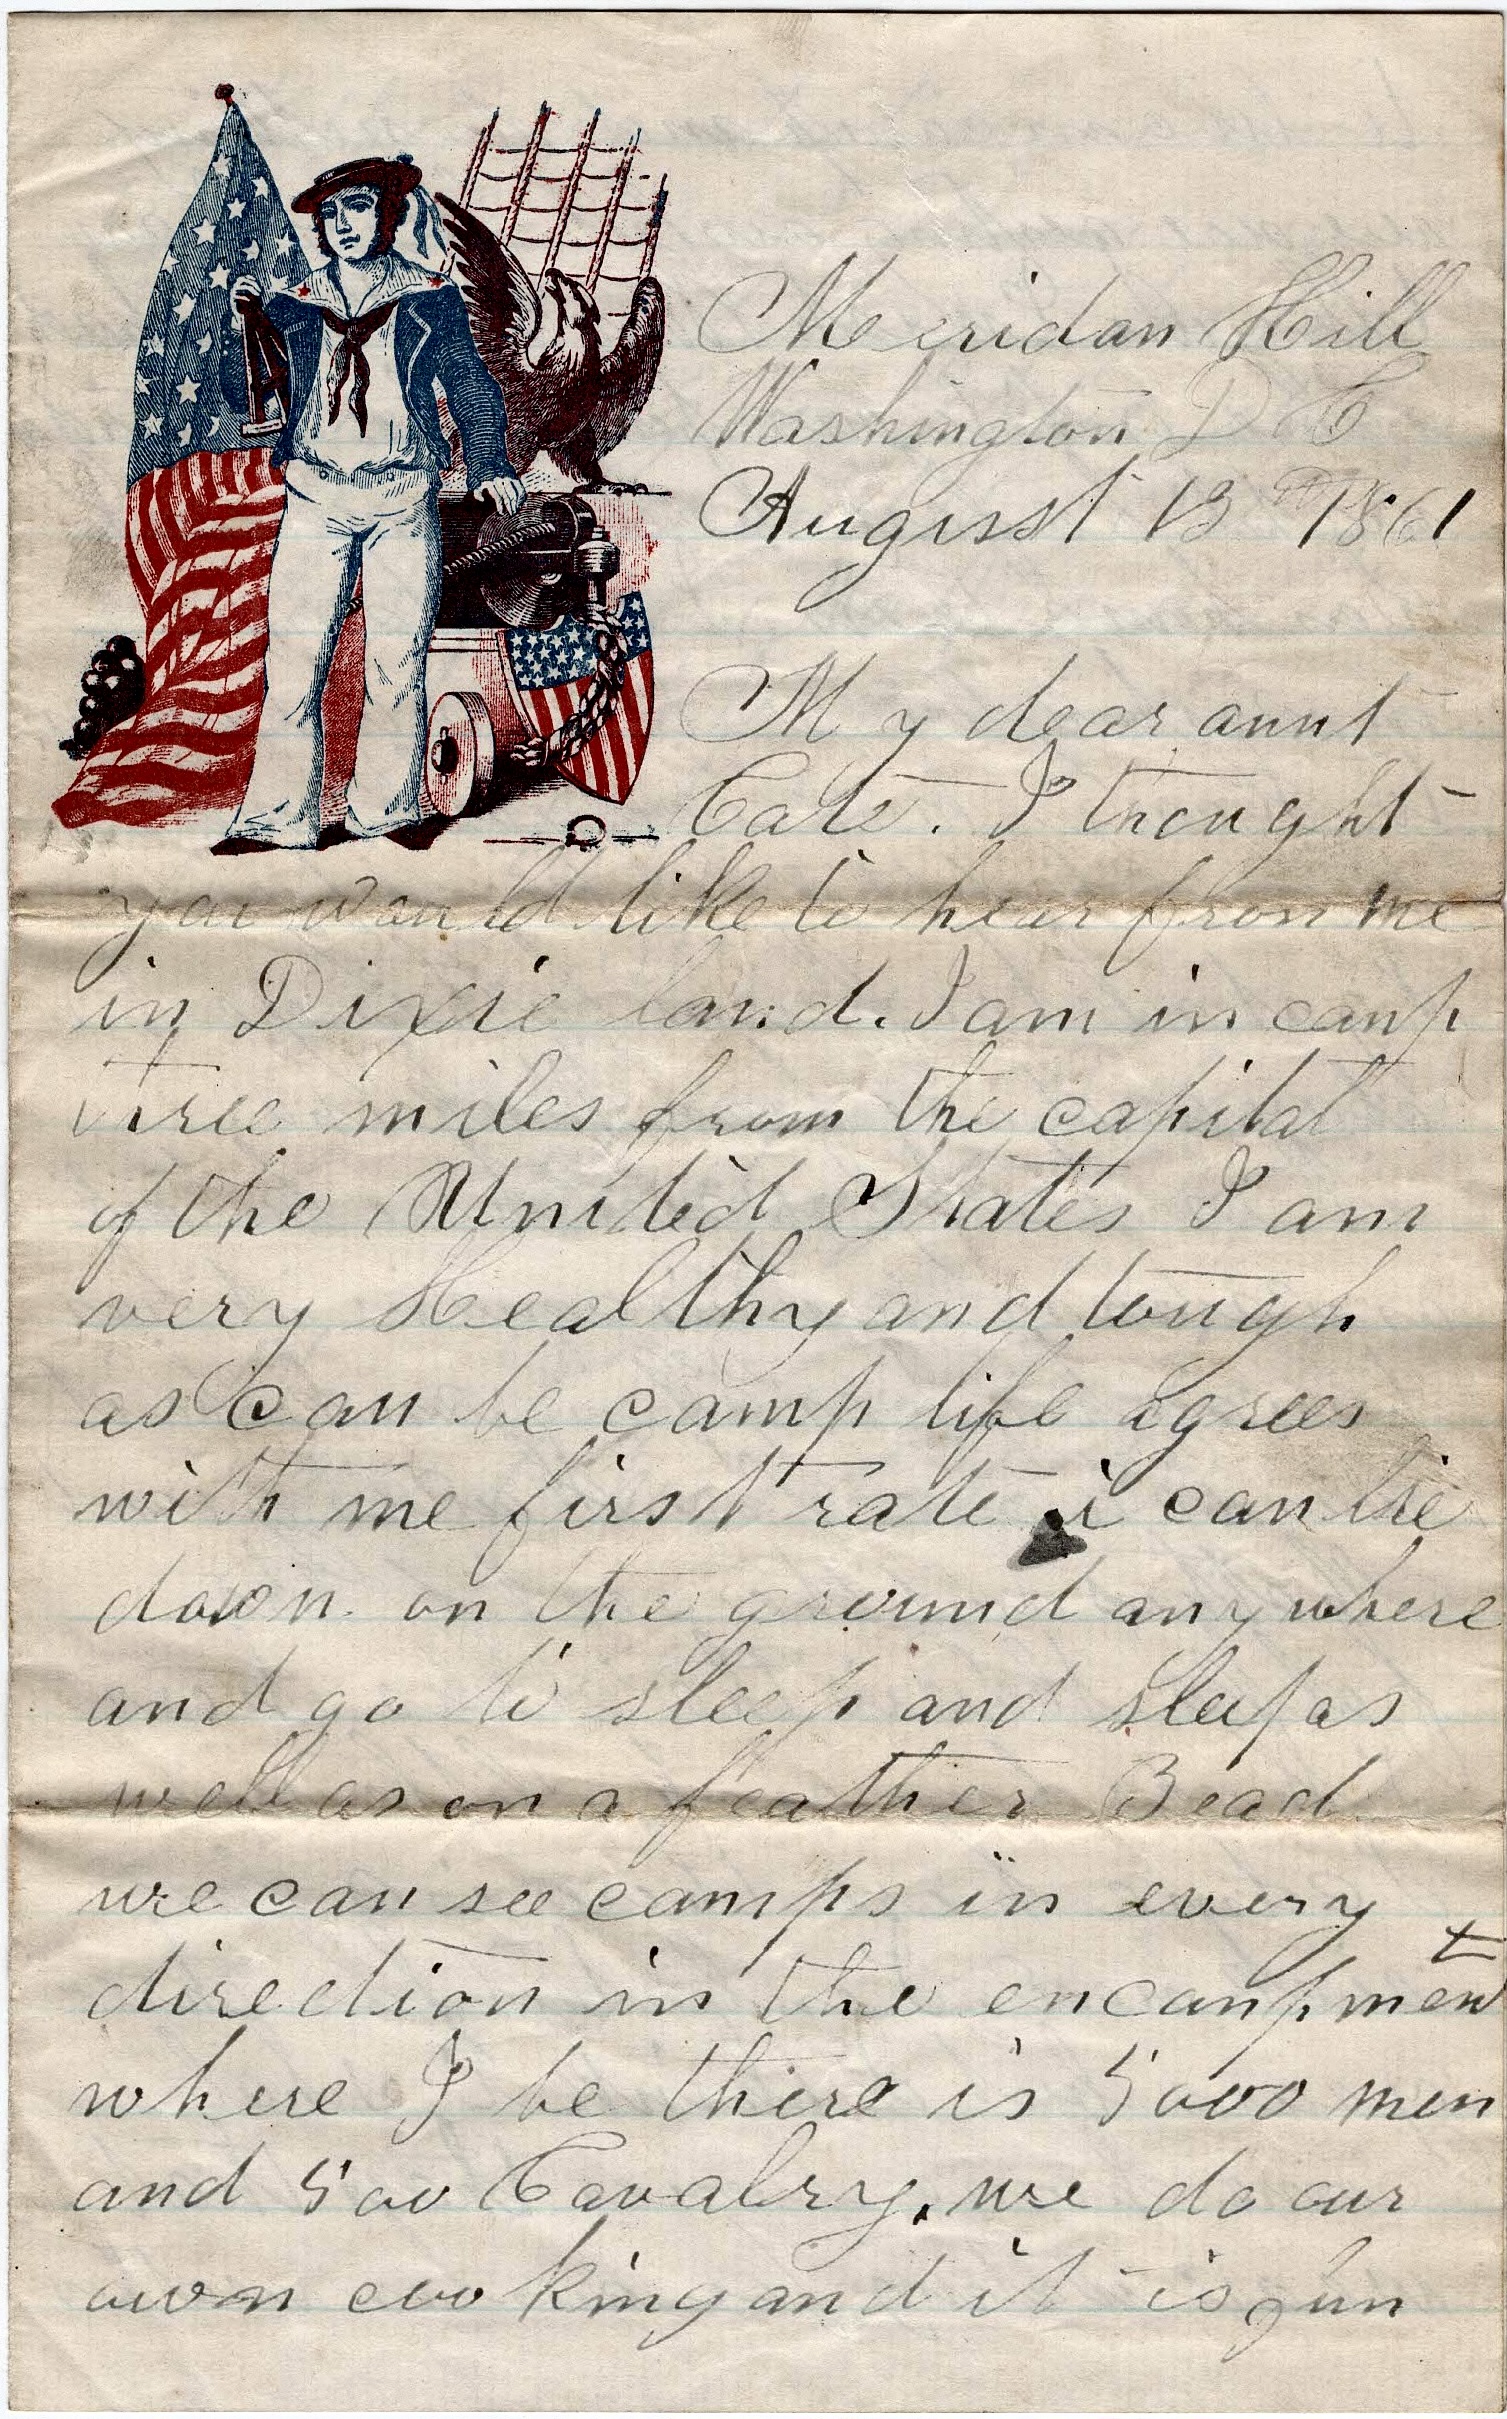 Meridan Hill
Washington D C
August 13th 1861
My dear aunt
Cate. I thought
you would like to hear from me
in Dixie land. I am in camp
three miles from the capital
of the United States I am
very Healthy and tough
as can be camp life agrees
with me first rate i can lie
down on the ground anywhere
and go to sleep and sleep as
well as on a feather Bead
we can see camps in every
direction in the encampment
where I be there is 5000 men
and 500 Cavalry. we do our
own cooking and it is fun